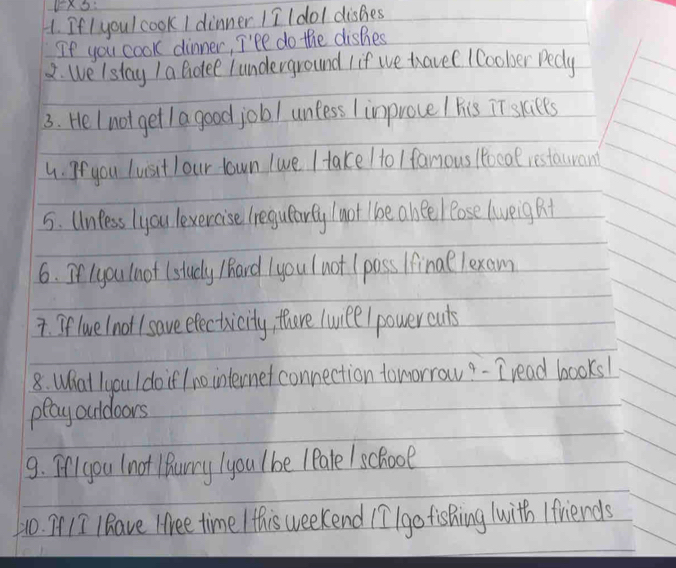 Ex 3:
1. If / you / cook / dinner / I / do / dishes
If you cook dinner, I'll do the dishes
2. We / stay / a hotel / underground / if we travel / Coober Pedy
3. He / not get / a good job / unless / improve / his iT skills
4. If you / visit / our town / we / take / to / famous / local restaurant
5. Unless / you / exercise / regularly / not / be able / lose / weight
6. If / you / not / study / hard / you / not / pass / final / exam
7. If / we / not / save electricity, there / will / power cuts
8. What / you / do if / no internet connection tomorrow? - I read books /
play outdoors
9. If / you / not / hurry / you / be / late / school
10. If / I / have / free time / this weekend / I / go fishing / with / friends